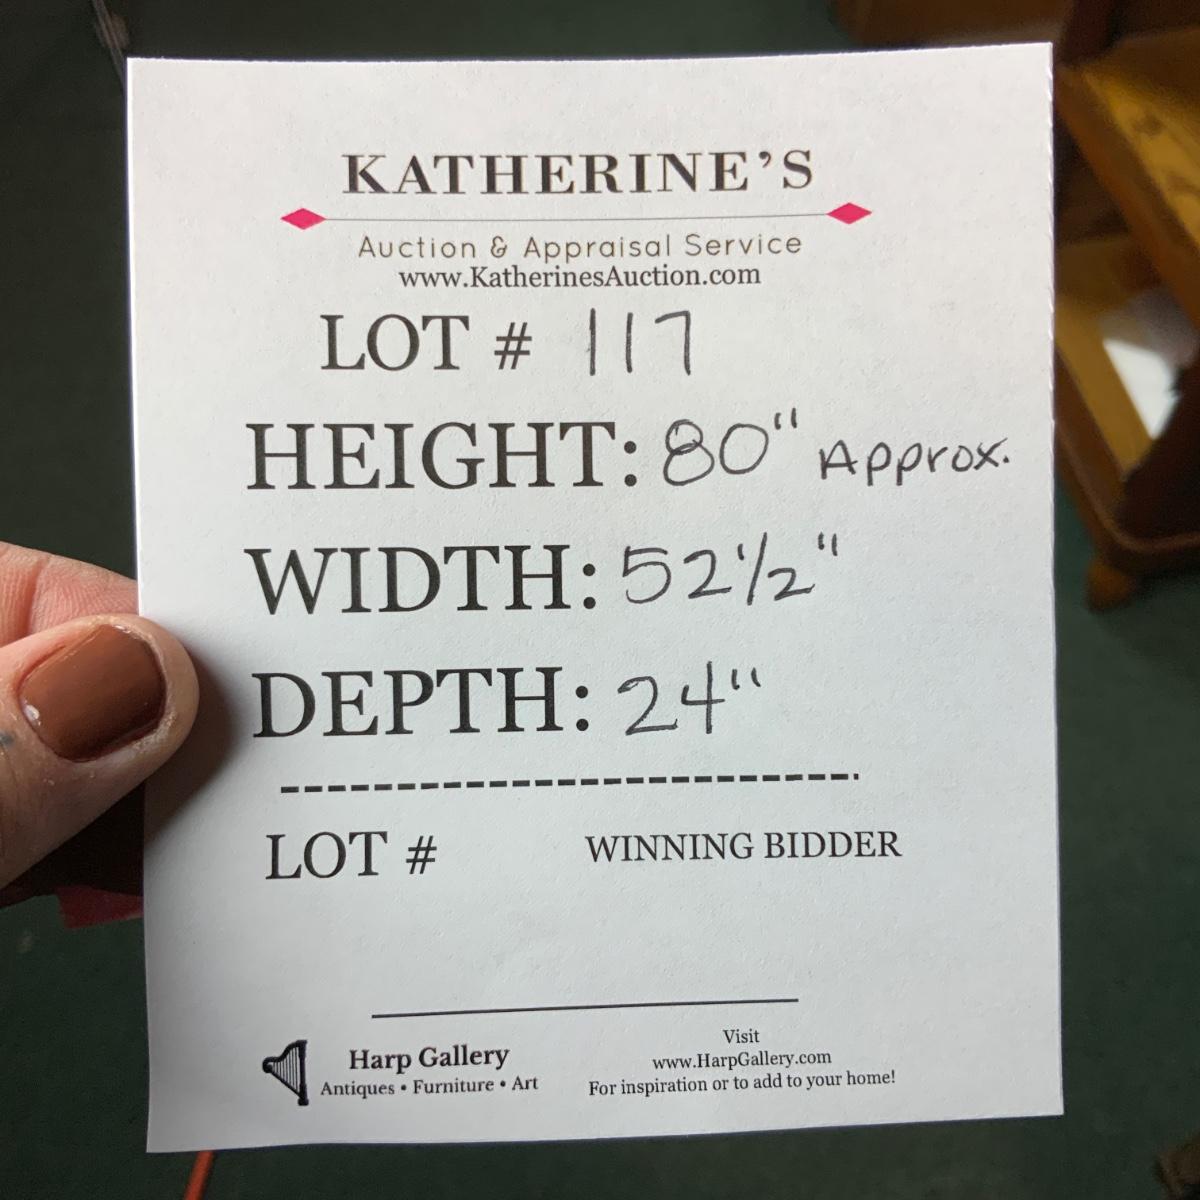 KATHERINE'S
Auction & Appraisal Service
www.KatherinesAuction.com
LOT # 117
HEIGHT: 80" Approx.
WIDTH: 52 1/2"
DEPTH: 24"
LOT #
WINNING BIDDER
Harp Gallery
Antiques • Furniture • Art
Visit
www.HarpGallery.com
For inspiration or to add to your home!